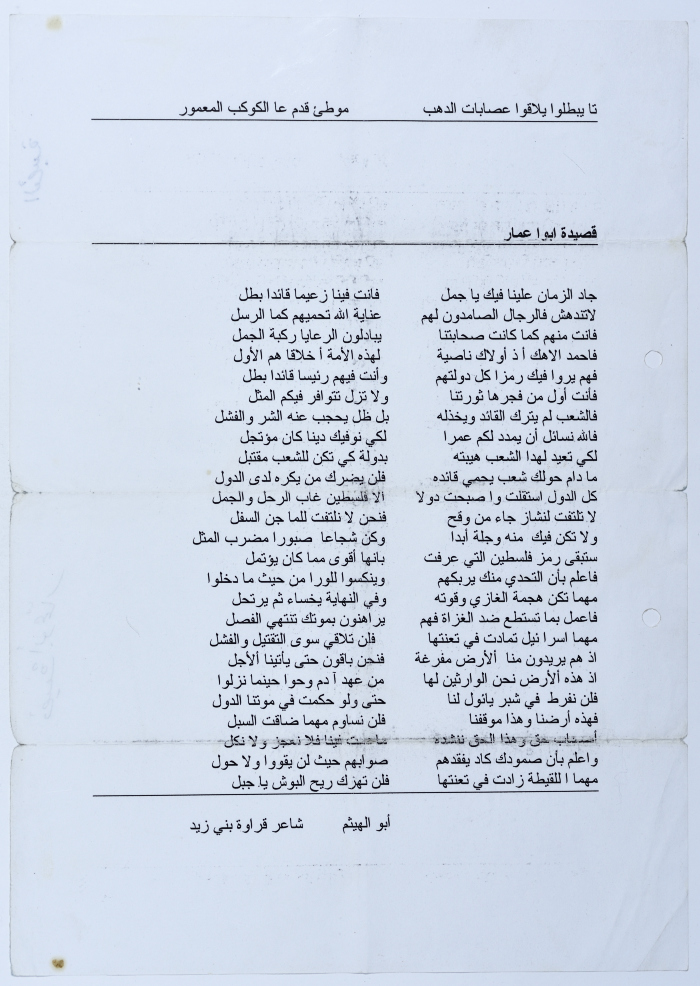 تا يبطلوا يلاقوا عصابات الدهب موطئ قدم عا الكوكب المعمور
قصيدة ابوا عمار
جاد الزمان علينا فيك يا جمل فانت فينا زعيما قائدا بطل
لاتندهش فالرجال الصامدون لهم عناية الله تحميهم كما الرسل
فانت منهم كما كانت صحابتنا يبادلون الرعايا ركبة الجمل
فاحمد الاهك أ ذ أولاك ناصية لهذه الأمة أ خلاقا هم الأول
فهم يروا فيك رمزا كل دولتهم وأنت فيهم رئيسا قائدا بطل
فأنت أول من فجرها ثورتنا ولا تزل تتوافر فيكم المثل
فالشعب لم يترك القائد ويخذله بل ظل يحجب عنه الشر والفشل
فالله نسائل أن يمدد لكم عمرا لكي نوفيك دينا كان مؤتجل
لكي تعيد لهدا الشعب هيبته بدولة كي تكن للشعب مقتبل
ما دام حولك شعب يحمي قائده فلن يضرك من يكره لدى الدول
كل الدول استقلت وا صبحت دولا ألا فلسطين غاب الرحل والجمل
لا تلتفت لنشاز جاء من وقح فنحن لا نلتفت للما جن السفل
ولا تكن فيك منه وجلة أبدا وكن شجاعا صبورا مضرب المثل
ستبقى رمز فلسطين التي عرفت بانها أقوى مما كان يؤتمل
فاعلم بأن التحدي منك يربكهم وينكسوا للورا من حيث ما دخلوا
مهما تكن هجمة الغازي وقوته وفي النهاية يخساء ثم يرتحل
فاعمل بما تستطع ضد الغزاة فهم يراهنون بموتك تنتهي الفصل
مهما اسرا نيل تمادت في تعنتها فلن تلاقي سوى التقتيل والفشل
اذ هم يريدون منا ألأرض مفرغة فنحن باقون حتى يأتينا ألأجل
اذ هذه ألأرض نحن الوارثين لها من عهد آ دم وحوا حينما نزلوا
فلن نفرط في شبر ياتول لنا حتى ولو حكمت في موتنا الدول
فهذه أرضنا وهذا موقفنا فلن نساوم مهما ضاقت السبل
أصحاب حق وهذا الحق ننشده فينا فلا نعجز ولا نكل
واعلم بأن صمودك كاد يفقدهم صوابهم حيث لن يقووا ولا حول
مهما ا للقيطة زادت في تعنتها فلن تهزك ريح البوش يا جبل
أبو الهيثم شاعر قراوة بني زيد